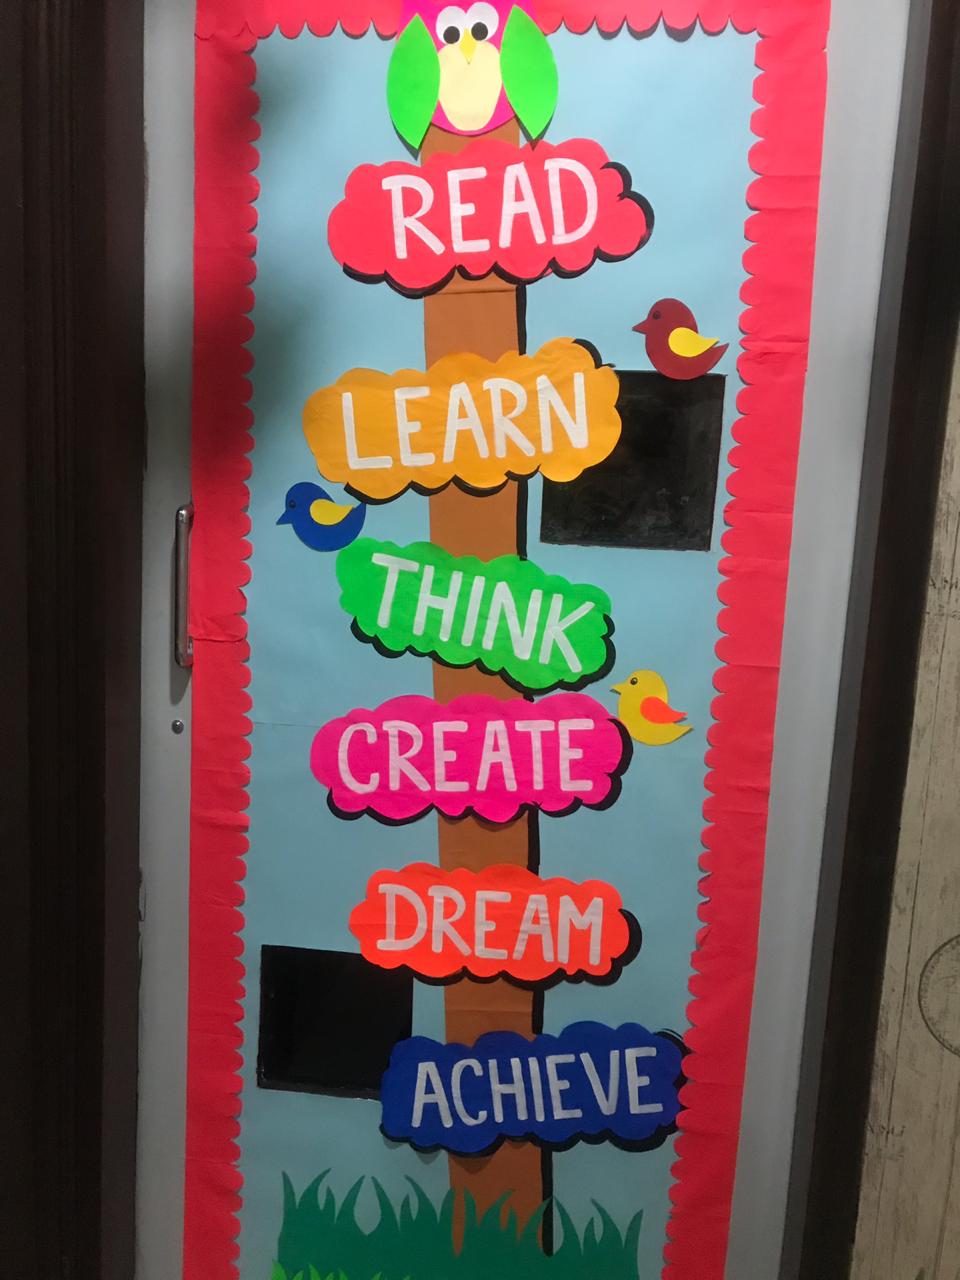 READ
LEARN
THINK
CREATE
DREAM
ACHIEVE